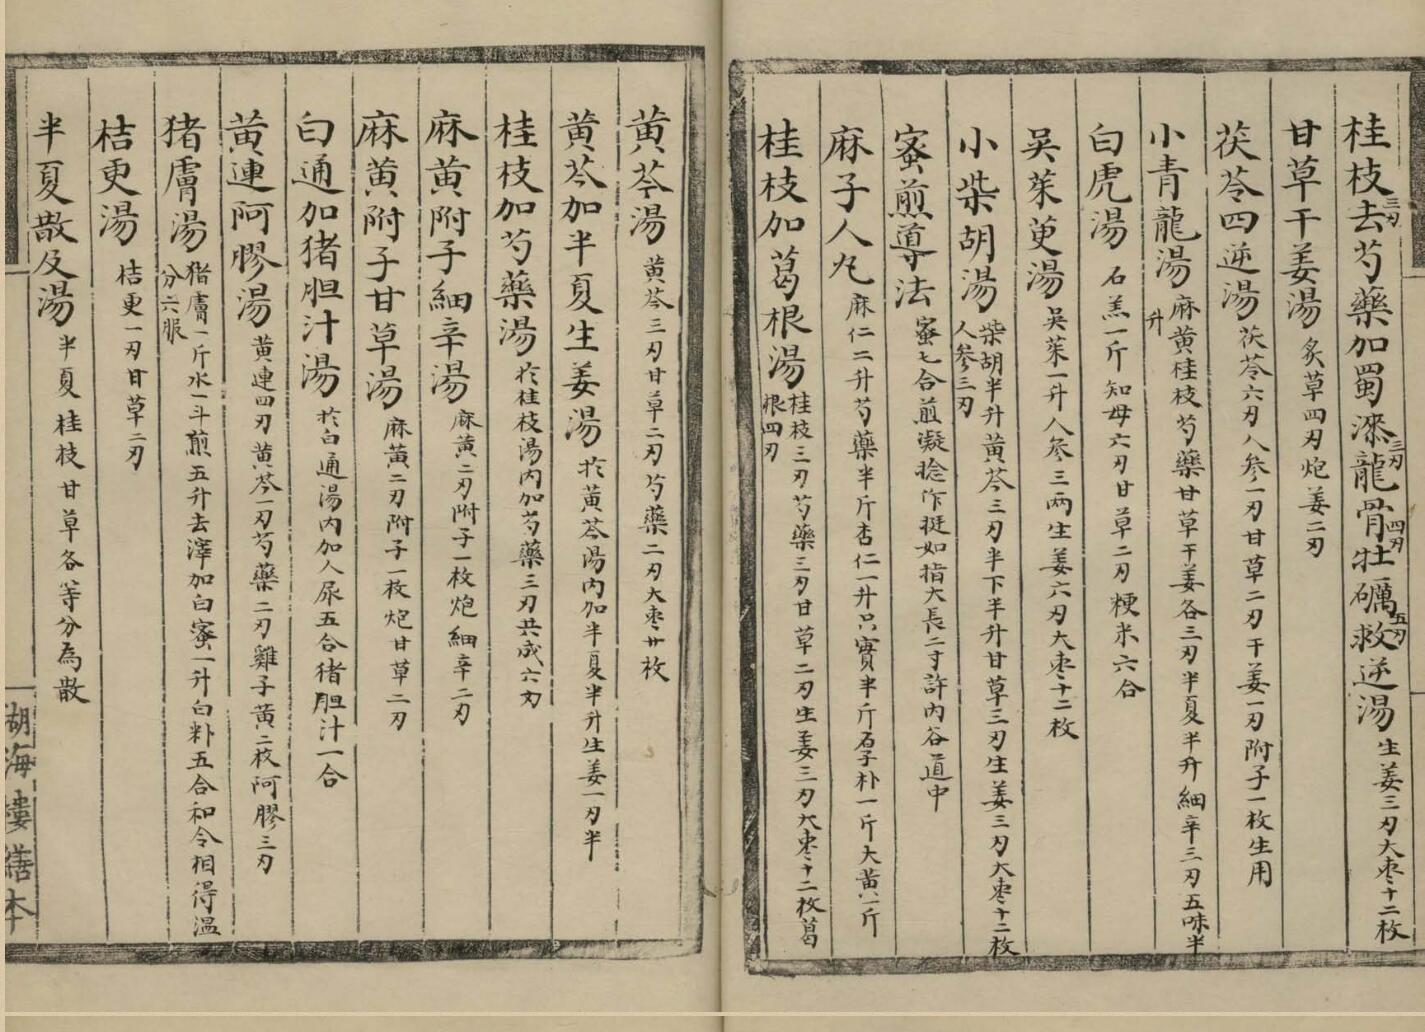 桂枝三刃去芍藥加蜀漆三刃龍骨四刃牡礪五刃救逆湯 生姜三刃大枣十二枚
甘草干姜湯 炙草四刃炮姜二刃
茯苓四逆湯 茯苓六刃人参一刃甘草二刃干姜一刃附子一枚生用
小青龍湯 麻黄桂枝芍藥甘草干姜各三刃半夏半升細辛三刃五味半
升
白虎湯 石羔一斤知母六刃甘草二刃粳米六合
吳茱萸湯 吳茱一升人参三两生姜六刃大枣十二枚
小柴胡湯 柴胡半升黄芩三刃半下半升甘草三刃生姜三刃大枣十二枚
人参三刃
蜜煎導法 蜜七合煎凝捻作挺如指大長二寸許内谷道中
麻子人丸 麻仁二升芍藥半斤杏仁一升只實半斤厚朴一斤大黄一斤
桂枝加葛根湯 桂枝三刃芍藥三刃甘草二刃生姜三刃大枣十二枚葛
根四刃
黄芩湯 黄芩三刃甘草二刃芍藥二刃大枣廿枚
黄芩加半夏生姜湯 扵黄芩湯内加半夏半升生姜一刃半
桂枝加芍藥湯 扵桂枝湯内加芍藥三刃共成六刃
麻黄附子細辛湯 麻黄二刃附子一枚炮細辛二刃
麻黄附子甘草湯 麻黄二刃附子一枚炮甘草二刃
白通加猪胆汁湯 扵白通湯内加人尿五合猪胆汁一合
黄連阿膠湯 黄連四刃黄芩一刃芍藥二刃雞子黄二枚阿膠三刃
猪膚湯 猪膚一斤水一斗煎五升去滓加白蜜一升白籵五合和令相得温
分六服
桔更湯 桔更一刃甘草二刃
半夏散及湯 半夏桂枝甘草各等分為散
湖海樓繕本